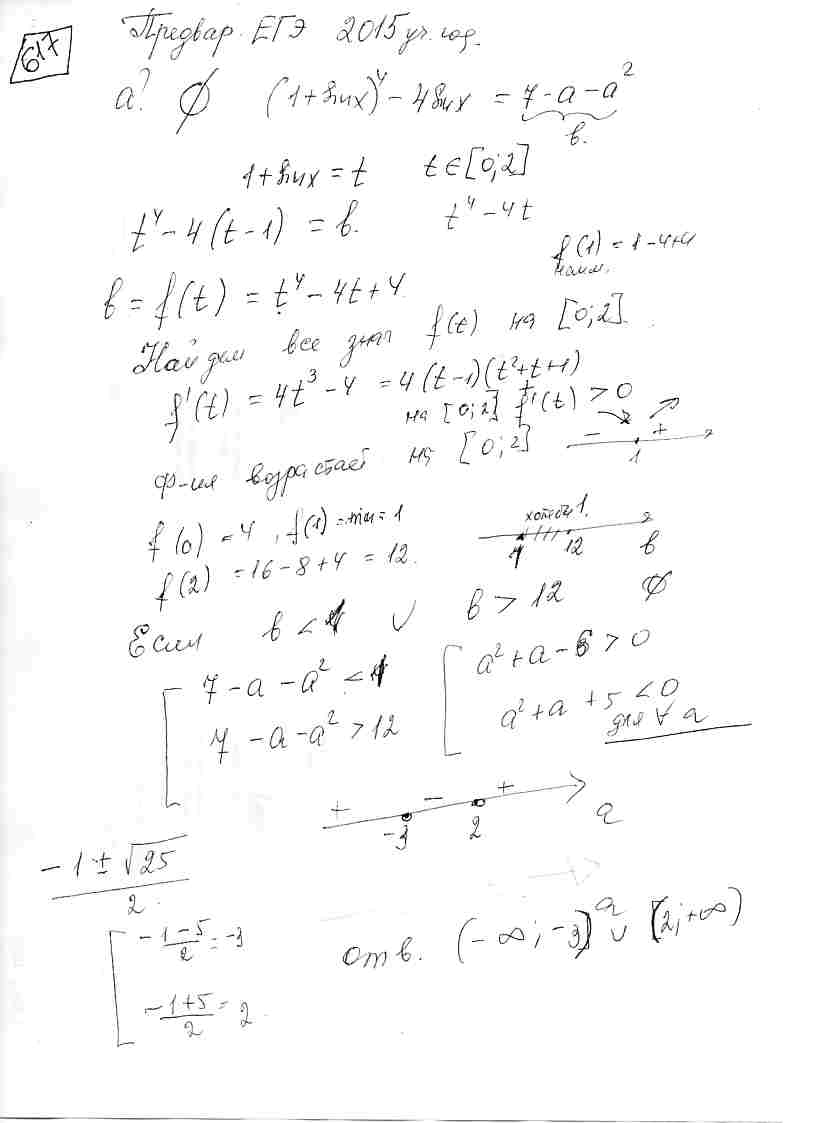 617
Предвар. ЕГЭ 2015 уч. год.
a? ∅ (1+sinx)⁴ - 4sinx = 7-a-a²
b.
1+sinx = t t∈[0;2]
t⁴-4(t-1) = b. t⁴-4t
f(1) = 1-4+4
наим.
b = f(t) = t⁴-4t+4
Найдем все знач f(t) на [0;2].
f'(t) = 4t³-4 = 4(t-1)(t²+t+1)
на [0;2] f'(t) > 0
- + 1
Ф-ия возрастает на [0;2]
f(0) = 4, f(1) = min = 1
хотя бы 1.
f(2) = 16-8+4 = 12. 1 12 b
Если b < 1 ∨ b > 12 ∅
7-a-a² < 1 a²+a-6 > 0
7-a-a² > 12 a²+a+5 < 0
для ∀ a
+ - + 
-3 2 a
-1±√25
2.
-1-5/2 = -3
отв. (-∞;-3) a ∪ (2;+∞)
-1+5/2 = 2.